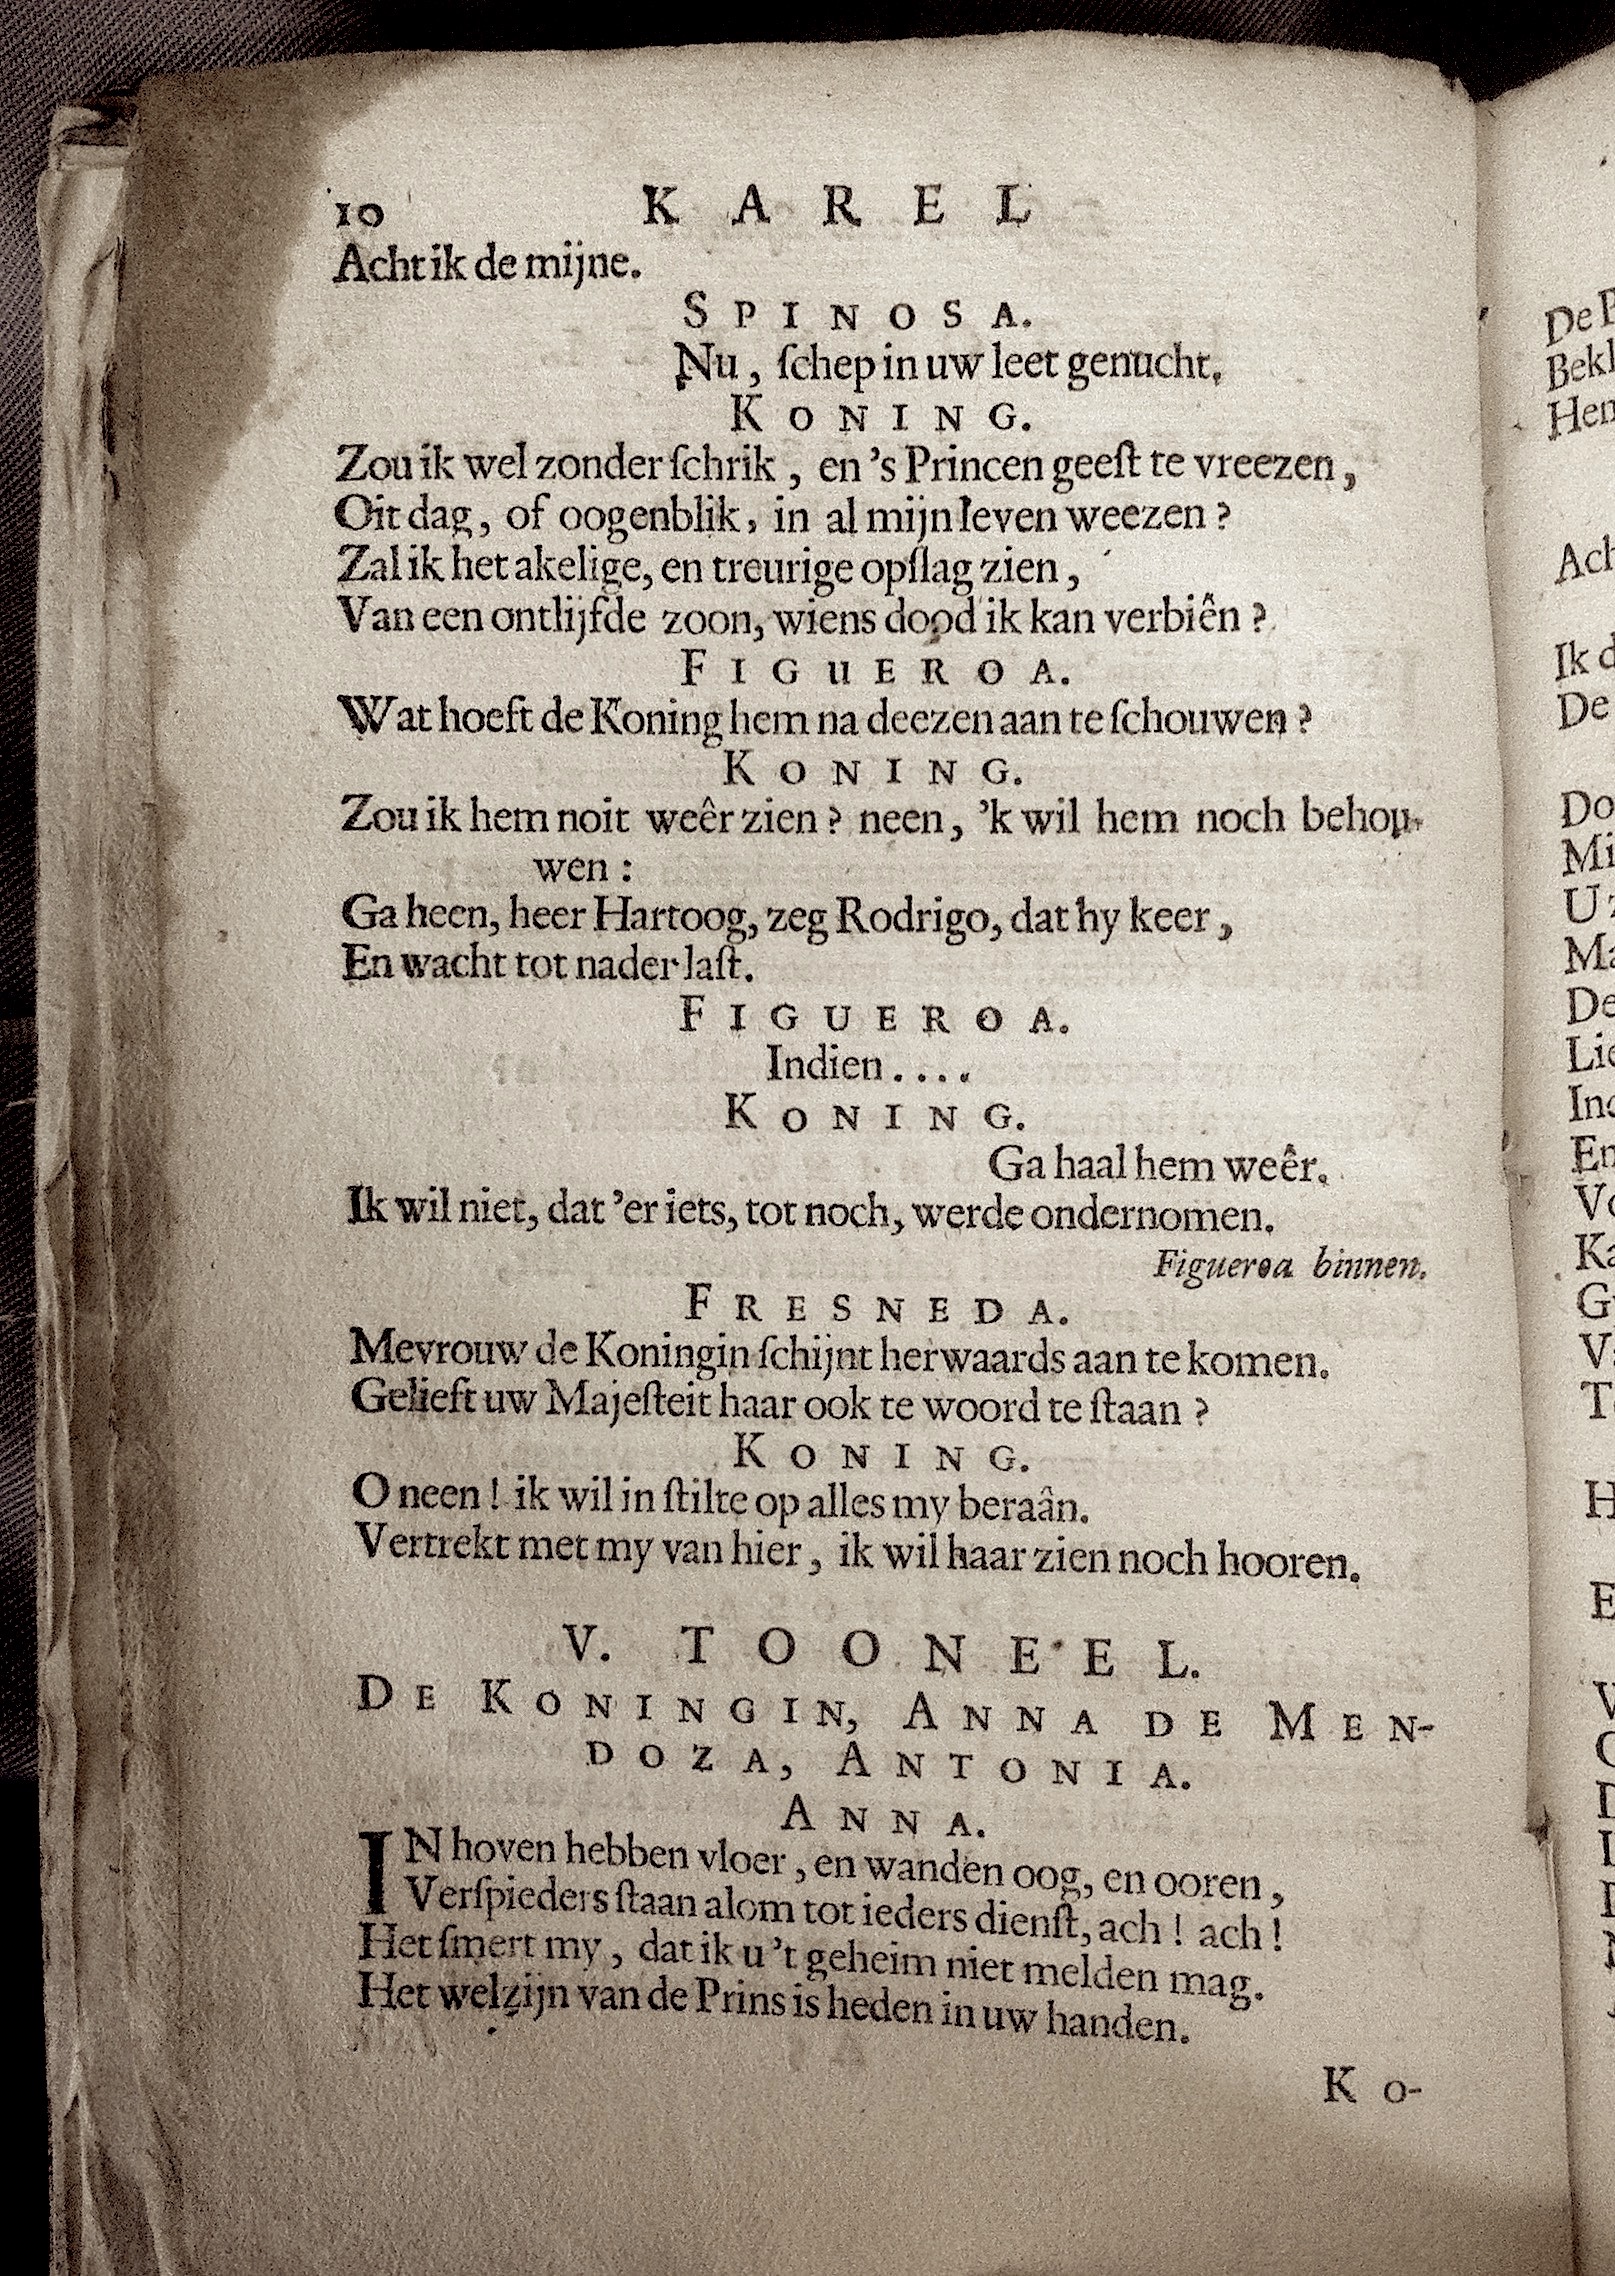 10 KAREL
Acht ik de mijne.
SPINOSA.
Nu, ſchep in uw leet genucht.
KONING.
Zou ik wel zonder ſchrik, en 's Princen geeſt te vreezen,
Oit dag, of oogenblik, in al mijn leven weezen?
Zal ik het akelige, en treurige opſlag zien,
Van een ontlijfde zoon, wiens dood ik kan verbiên?
FIGUEROA.
Wat hoeft de Koning hem na deezen aan te ſchouwen?
KONING.
Zou ik hem noit weêr zien? neen, 'k wil hem noch behou-
wen:
Ga heen, heer Hartoog, zeg Rodrigo, dat hy keer,
En wacht tot nader laſt.
FIGUEROA.
Indien....
KONING.
Ga haal hem weêr.
Ik wil niet, dat 'er iets, tot noch, werde ondernomen.
Figueroa binnen.
FRESNEDA.
Mevrouw de Koningin ſchijnt herwaards aan te komen.
Gelieft uw Majeſteit haar ook te woord te ſtaan?
KONING.
O neen! ik wil in ſtilte op alles my beraân.
Vertrekt met my van hier, ik wil haar zien noch hooren.
V. TOONEEL.
DE KONINGIN, ANNA DE MEN-
DOZA, ANTONIA.
ANNA.
IN hoven hebben vloer, en wanden oog, en ooren,
Verſpieders ſtaan alom tot ieders dienſt, ach! ach!
Het ſmert my, dat ik u 't geheim niet melden mag.
Het welzijn van de Prins is heden in uw handen.
KO-
De
Bekl
Hen
Ach
Ik d
De
Do
Mi
U
Ma
De
Lie
Ind
En
Vo
Ka